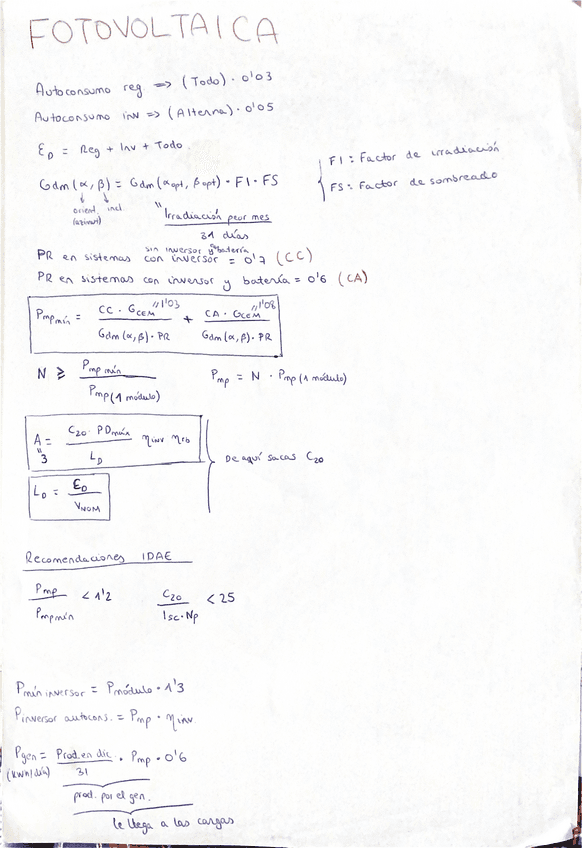 FOTOVOLTAICA
Autoconsumo reg => (Todo) · 0'03
Autoconsumo inv => (Alterna) · 0'05
ED = Reg + Inv + Todo
Gdm(α,β) = Gdm(αopt, βopt) · FI · FS
FI: Factor de irradiación
FS: Factor de sombreado
orient. incl.
(azimut)
"Irradiación peor mes"
31 días
sin inversor y batería
PR en sistemas con inversor = 0'7 (CC)
PR en sistemas con inversor y batería = 0'6 (CA)
Pmpmín = CC · GCEM "1'03 / Gdm(α,β) · PR + CA · GCEM "1'08 / Gdm(α,β) · PR
N ≥ Pmpmín / Pmp(1 módulo)
Pmp = N · Pmp(1 módulo)
A = C20 · PDmáx / LD ηinv ηrb
"
3
De aquí sacas C20
LD = ED / VNOM
Recomendaciones IDAE
Pmp / Pmpmín < 1'2
C20 / Isc · Np < 25
Pmín inversor = Pmódulo · 1'3
Pinversor autocons. = Pmp · ηinv
Pgen = Prod.en dic / 31 · Pmp · 0'6
(kWh/día)
prod. por el gen.
le llega a las cargas